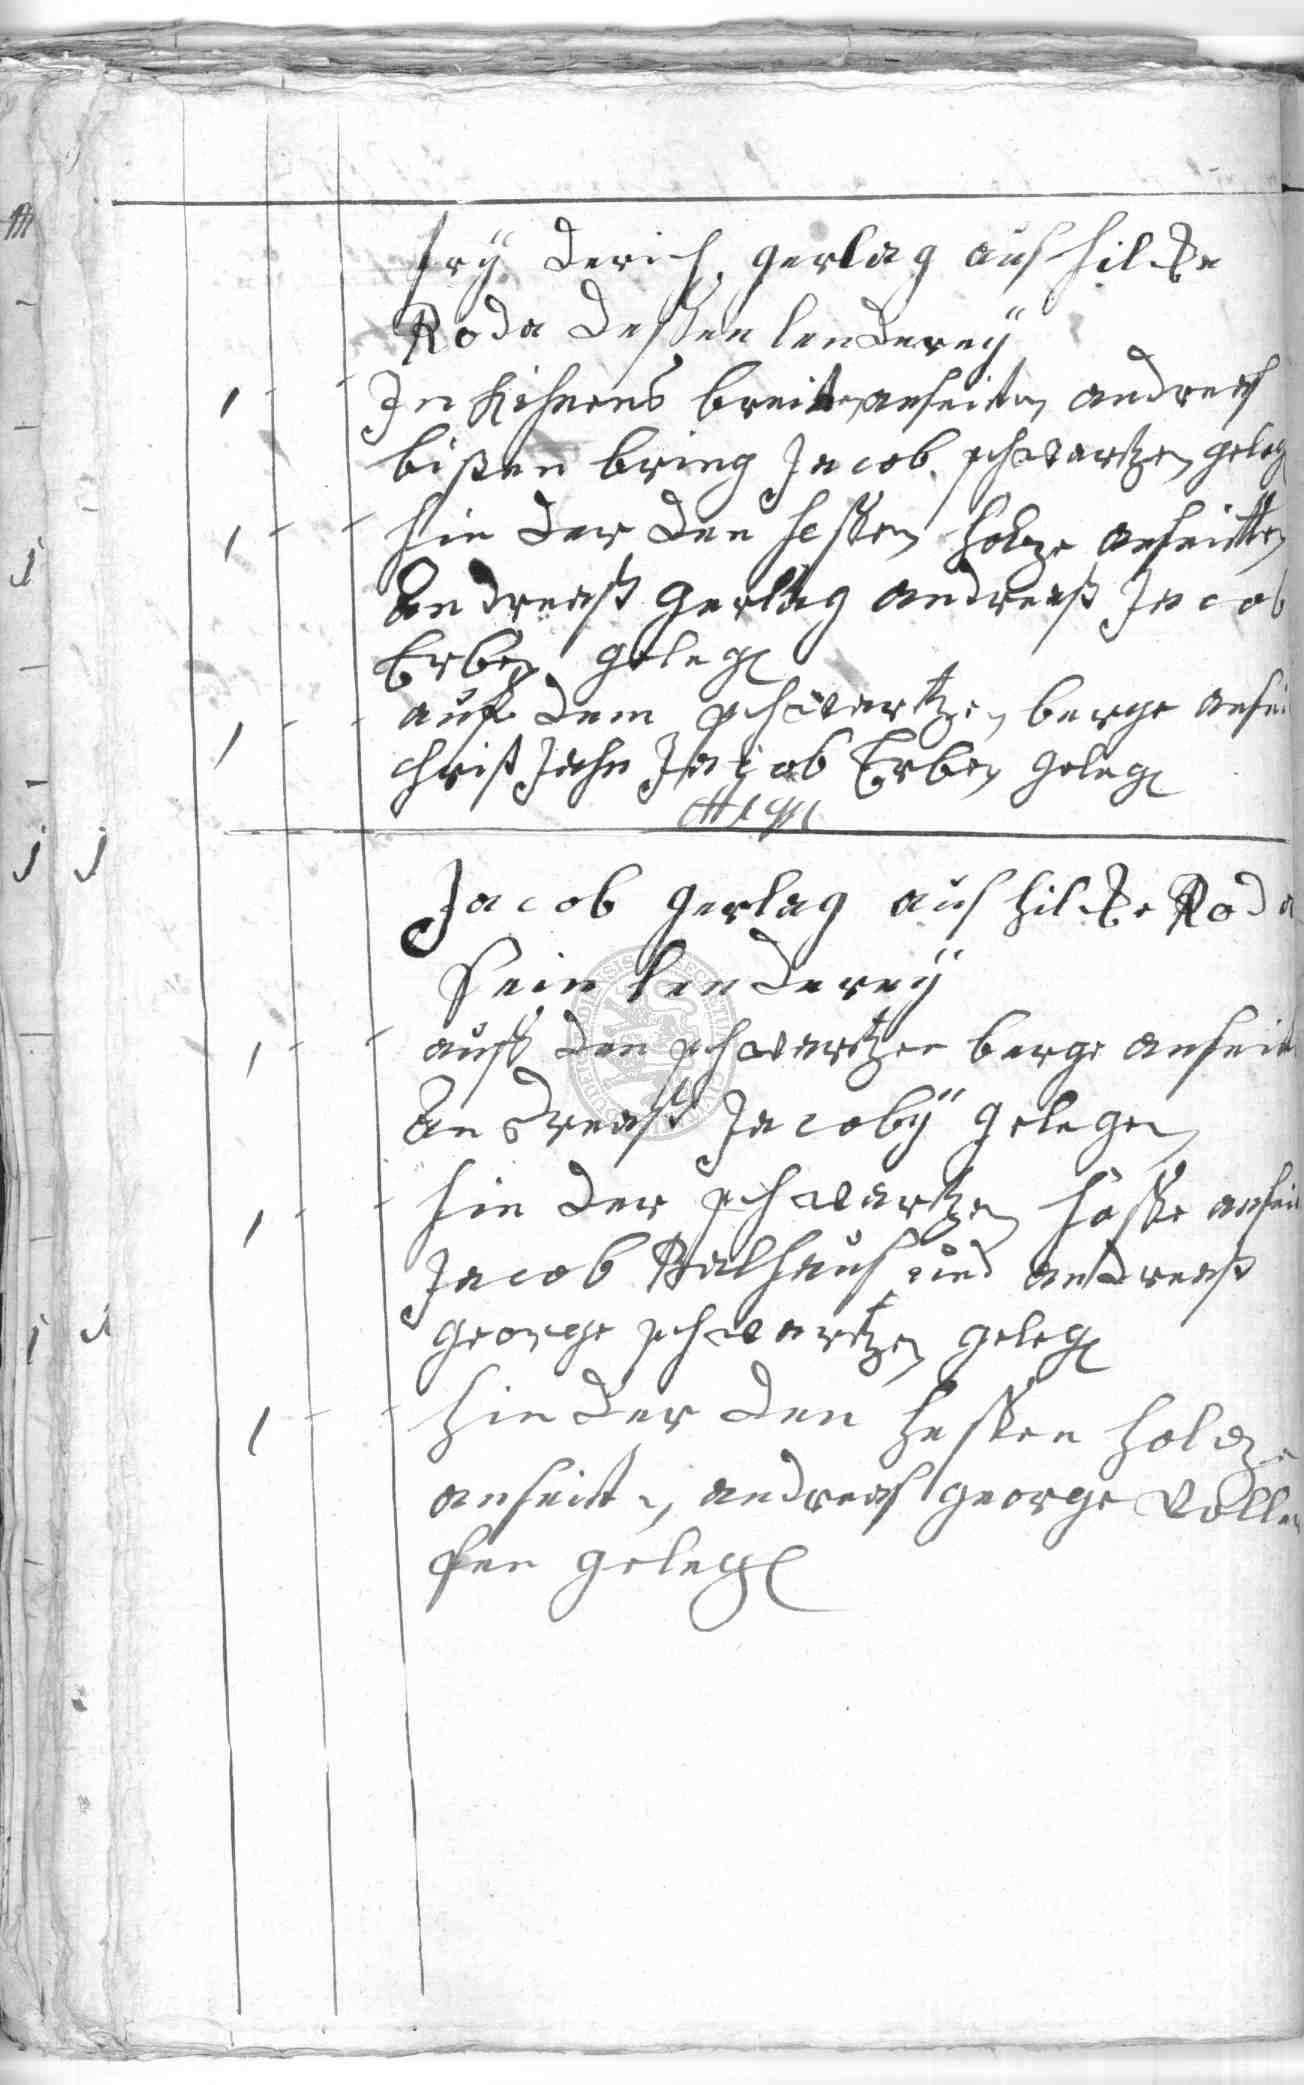 fry derich gerlag aus hilcke
Roda deßen lenderey
1 - - In breitten anseiten andreas
bißen bring Jacob schwartzen geleg
1 - - hin der den heßen holtze anseitten
Andreaß gerlag andreaß Jacob
Erben geleg
1 - - auff dem schwartzen berge ansei
christ Jahn Jacob Erben geleg
Jacob gerlag aus hilcke Roda
sein lenderey
1 - - auff den schwartzen berge anseit
Andreaß Jacoby gelegen
1 - - hin der schwartzen anseit
Jacob Balhaus und andreaß
george schwartzen geleg
1 - - hin der den heßen holtze
anseitten andreas george
sen geleg